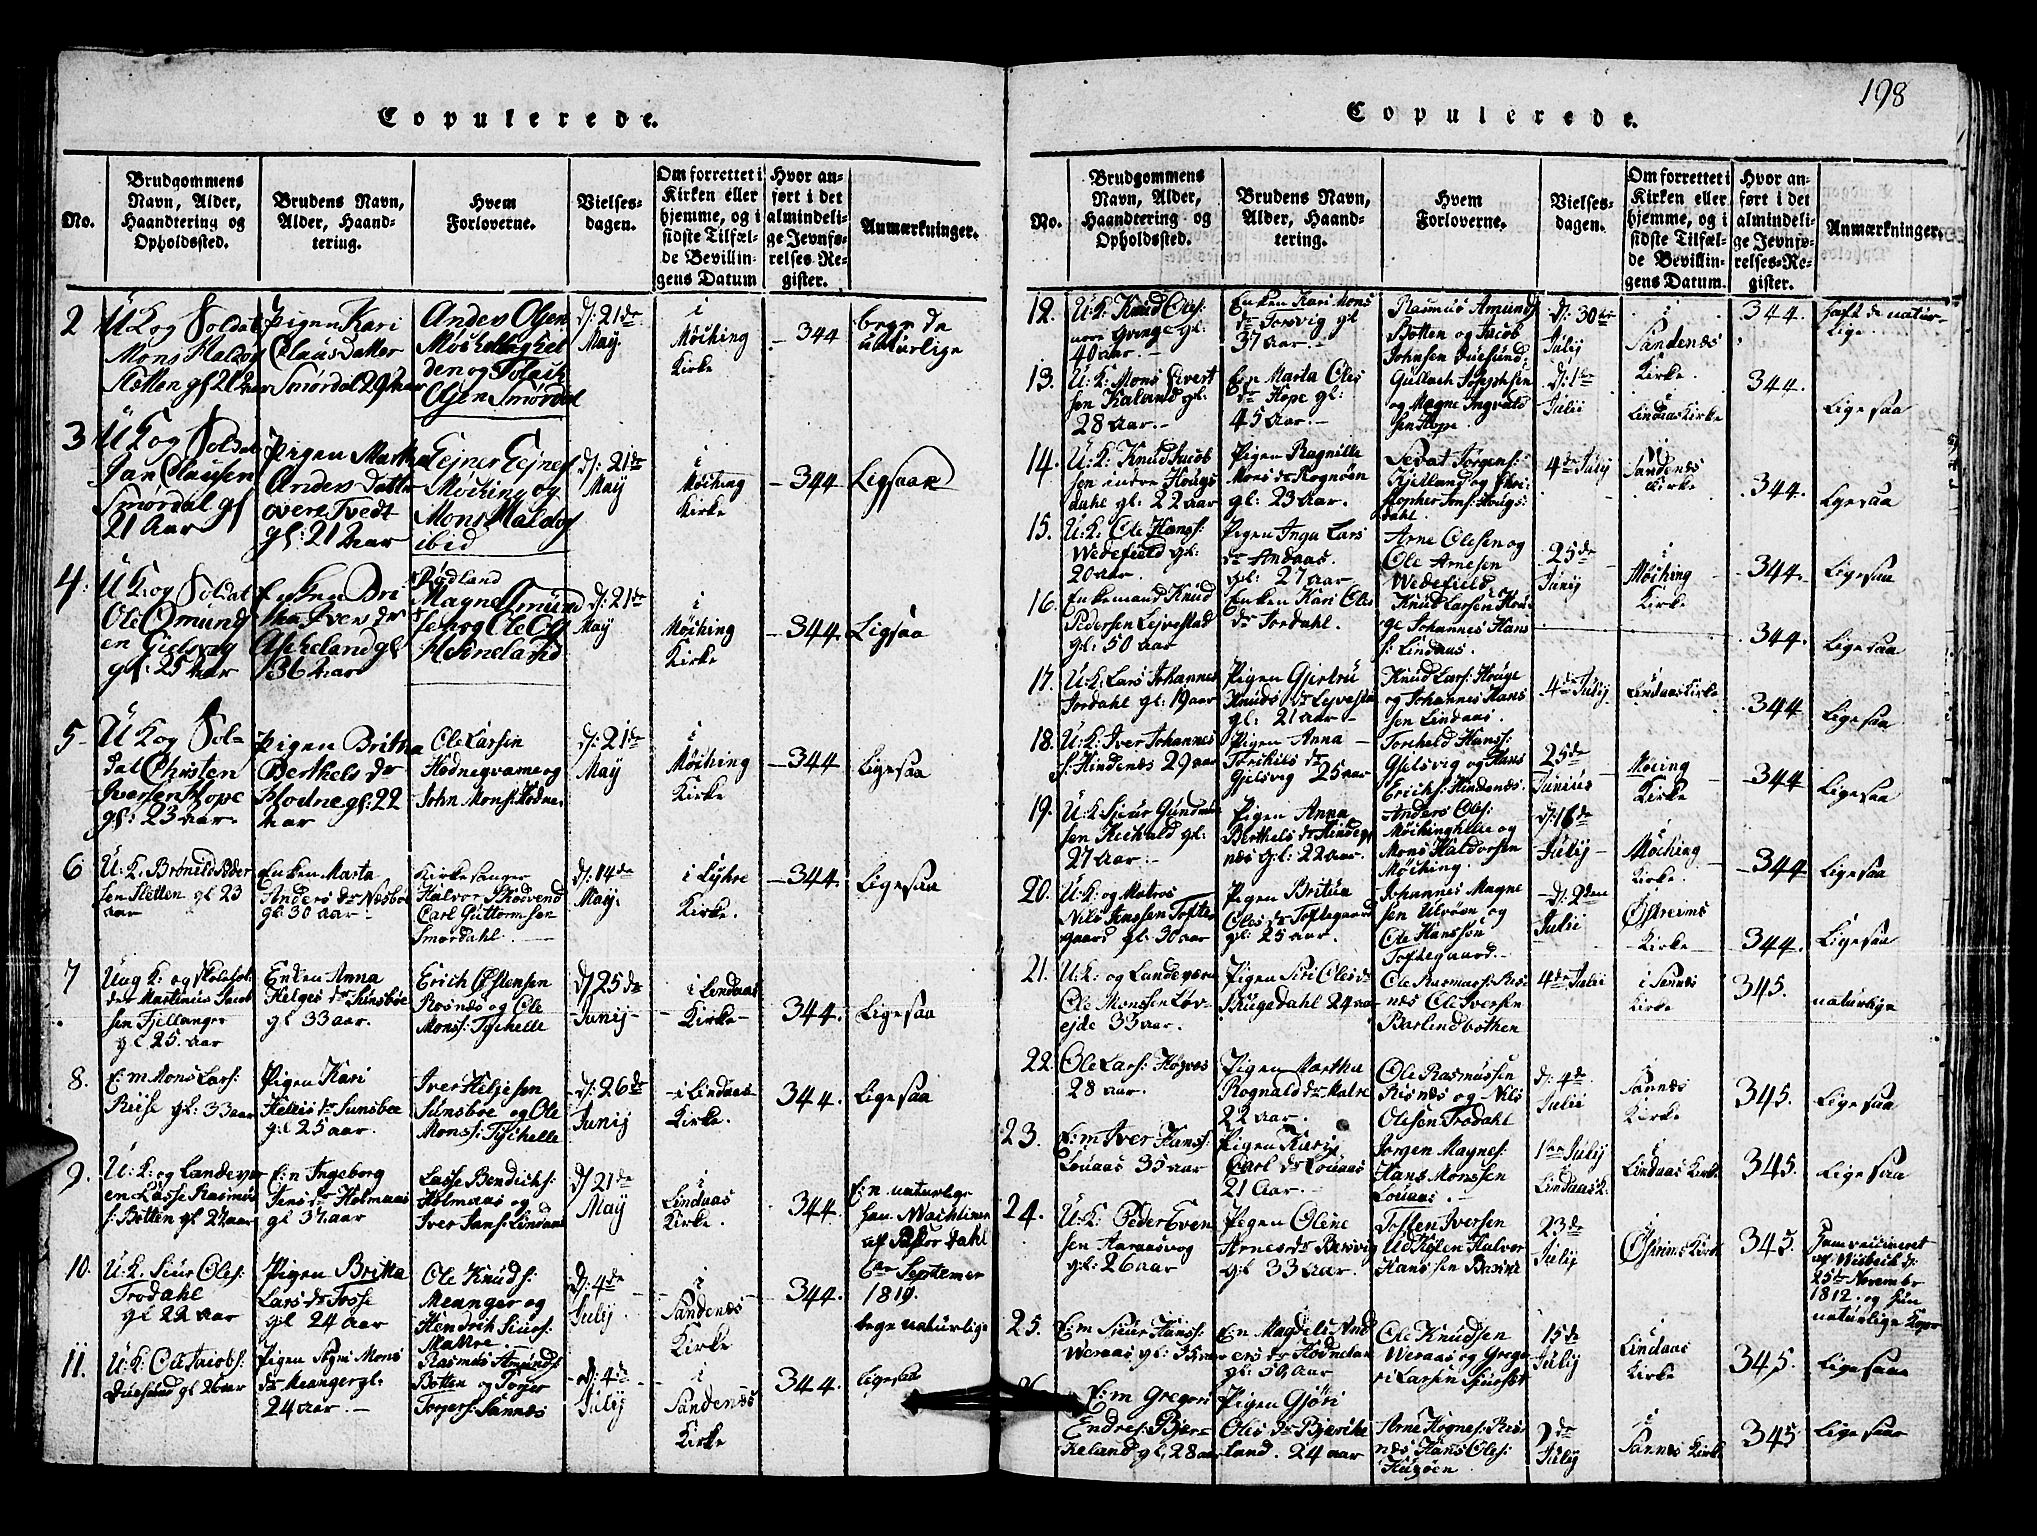 198
Copulerede.
No.
Brudgommens
Navn, Alder,
Haandtering og
Opholdssted.
Brudens Navn,
Alder, Haand-
tering.
Hvem
Forloverne.
Vielses-
dagen.
Om forrettet i
Kirken eller
hjemme, og i
sidste Tilfæl-
de Bevillin-
gens Datum
Hvor an-
ført i det
almindeli-
ge Jevnfø-
relses-Re-
gister.
Anmærkninger.
2
UK og Soldat
Mons Haldog
Sletten gl 20 aar
Pigen Kari
Claus Datter
Smørdal 29 aar
Anders Olsen
den og
Olsen Smørdal
d: 21de
May
i
Møching
Kirke
344
begge de
naturlige
3
UK og Soldat
Jan Clausen
Smørdal gl
21 Aar
Pigen Martha
Anders Datter
overe Tvedt
gl: 21 aar
Ejner Ejners
Møching og
Mons Haldog
ibid
d: 21de
May
i
Møching
Kirke
344
Ligesaa
4.
UK: og Soldat
Ole Omund
en Gielsvog
gl: 25 aar
Enken Bri
tha Ivers dr
Askeland gl
36 aar
Rødland
Magne Omund
sen og Ole
Helneland
d: 21de
May
i
Møching
Kirke
344.
Ligsaa
5
UK og Sol-
dat Christen
Iversen Hope
gl: 23 aar.
Pigen Britha
Berthels dr
Hodne gl: 22
aar
Ole Larsen
Hodnegvame og
John Mons: Hodne
d: 21de
May
i
Møching
Kirke
344
Ligesaa
6
U: K. Brønild Peder
sen Sletten gl 23
aar
Enken Marta
Anders dr Næsboe
gl. 30 aar
Kirkesanger
Halvor
Carl Guttormsen
Smordahl.
d: 14de
May.
i Lyhre
Kirke.
344.
Ligesaa
7
Ung K: og skolehol
der Martinus Jacob
sen Fjellanger
gl 25. aar
Enken Anna
Helges dr Sunsboe
gl 33 aar.
Erich Østensen
Rosnæs og Ole
Monss: Tychelle
d 25de
Junij
i Lindaas
Kirke
344.
Ligesaa
8.
E: m Mons Lars:
Riise gl: 33 aar
Pigen Kari
Helies dr Sunsboe
gl 25 aar.
Iver Heljesen
Sunsboe og Ole
Monss: Tychelle
d: 26de
Junij
i Lindaas
Kirke.
344.
Ligesaa
9.
U: K: og Landever
en Lasse Rasmus
s: Botten gl 27. aar
E: n Ingeborg
Jens dr Holmaas
gl 37. aar
Lasse Bendichs:
Holmaas og
Iver Jans: Lindaas
d 21de
May
i
Lindaas
Kirke.
344.
E: n naturlige
af Pastor Dahl
6te September
1810.
10.
U: K. Siur Oles:
Trodahl
gl 22 aar
Pigen Britta
Lars dr Fosse
gl 24 aar
Ole Knuds:
Meanger og
Hendrik Siurs:
d: 4de
Julij.
i
Sandenæs
Kirke
344.
bege naturlige
11.
U: K: Ole Jacobs:
Duesund gl 26 aar
Pigen Mons
dr Meanger gl:
24 aar.
Rasmus Amunds
Botten og Torger
Torgers: Sannæs
d: 4de
Julij
i
Sandenæs
Kirke
344.
ligesaa
Copulerede.
No.
Brudgommens
Navn, Alder,
Haandtering og
Opholdssted.
Brudens Navn,
Alder, Haand-
tering.
Hvem
Forloverne.
Vielses-
dagen.
Om forrettet i
Kirken eller
hjemme, og i
sidste Tilfæl-
de Bevillin-
gens Datum.
Hvor an-
ført i det
almindeli-
ge Jevnfø-
relses-Re-
gister.
Anmærkninger.
12.
U: K. Knud Oles:
gl:
40 aar.
Enken Kari Mons
dr Torsvig gl
37 aar.
Rasmus Amunds
Botten og Jacob
Johnsen Duesund.
d: 30te
Julij
i
Sandenæs
Kirke.
344.
natur-
lige.
13.
U: K: Mons Sivert
sen Kaland gl:
28 aar.
En Marta Oles
dr Hope gl:
45 aar.
Gullach Josephsen
og Magne Ingvalds
sen Hope.
d: 1te
Julii
Lindaas Kirke
344.
Ligesaa
14.
U: K: Knud Jacob
sen indre Hougs
dahl gl: 22 aar
Pigen Ragnille
Mons dr Rognøen
gl: 23 aar.
Sevat Jørgens:
Kjelland og Chri
stopher Jons: Hougs
dahl.
4de Julij
i
Sandenæs
Kirke
344.
Ligesaa
15.
U: K: Ole Hans:
Wedefield gl:
20 aar.
Pigen Inga Lars
dr Andaas.
gl: 27 aar
Arne Olesen og
Ole Arnesen
Wedefield
25de
Junij
i
Møching
Kirke
344.
Ligesaa
16.
Enkemand Knud
Pedersen Lejvestad
gl: 50 aar
Enken Kari Oles
dr Fordahl.
Knud Larsen Hou
ge Johannes Hans
s: Lindaas.
344.
Ligesaa
17.
U: K: Lars Johannes
Fordahl gl: 19 aar
Pigen Gjertru
Knuds dr Lejvestad
gl: 21 aar
Knud Lars: Houge
og Johannes Hans
sen Lindaas.
4de Julij.
Lindaas Kirke
344
Ligesaa
18.
U: K: Iver Johannes
s: Hindenæs 29 aar
Pigen Anna
Torkils dr
Gjelsvig 25 aar
Torkeld Hans:
Gjelsvig og Hans
Erichs: Hindenæs.
25de
Junius
i
Møcing
Kirke
344
Ligesaa
19.
U: K Sjur Gundmun
sen Kieihald gl:
27 aar.
Pigen Anna
Berthels dr Hinde
næs gl: 22 aar.
Anders Oles:
Møchinghelle og
Mons Haldorsen
Møching.
d: 16de
Julij
i
Møching
Kirke.
344
Ligesaa
20.
U: K: og Matros
Nils Jenssen Tofte
gaard gl: 30 aar
Pigen Britha
Oles dr Toftegaard
gl: 25 aar.
Johannes Magne
sen Utvøen og
Ole Hanssen
Toftegaard.
d: 2den
Julii
i
Østreims
Kirke
344.
Ligesaa
21.
U: K: og Landeværn
Ole Monssen Løv-
ejde 33 aar.
Pigen Siri Oles dr
Skugedahl 24 aar
Ole Rasmuss: Ris
næs Ole Iversen
Barlindbotten
4de Julii
i Sannæs
Kirke
345.
naturlige
22.
Ole Lars: Hopnæs
28 aar.
Pigen Martha
Rognald dr Matre
22 aar.
Ole Rasmussen
Risnæs og Nils
Olesen Trodahl
d: 4de
Julii
i
Sannæs
Kirke
345.
Ligesaa
23.
E: m Iver Hans:
Louaas 35 aar
Pigen Kari
Carl dr Louaas
21 Aar.
Jørgen Magnes:
Hans Monssen
Louaas.
1te Julij
Lindaas K.
Lindaas Kirke
345.
Ligesaa
24.
U: K: Peder Even
sen Aaraasvog
gl: 26 aar
Pigen Oline
Arnes dr Bersvig
gl: 33 aar.
Tosten Iversen
Udkilen Halvor
Hanssen
23de
Julij
i
Østreims Kirke
345.
ham vaccineret
af Nisbeth d:
25te November
1812. og hun
naturlige Koper
25.
E: m Siur Hans:
Weraas gl:
En Magdeli And
ers dr Hodneland
gl: 39 aar
Ole Knudsen
Weraas og Grego
ri Larsen
15de
Julij
i
Lindaas
Kirke
345.
Ligesaa
26
E: m Gregori
Endres: Bjer-
keland gl, 28 aar
Pigen Gjøri
Oles dr Bjerike
land. 24 aar
Arne Hognes: Ris-
næs Hans Oles:
Huzøen
2de
Julij
i
Sannæs Kirke
345
Ligesaa